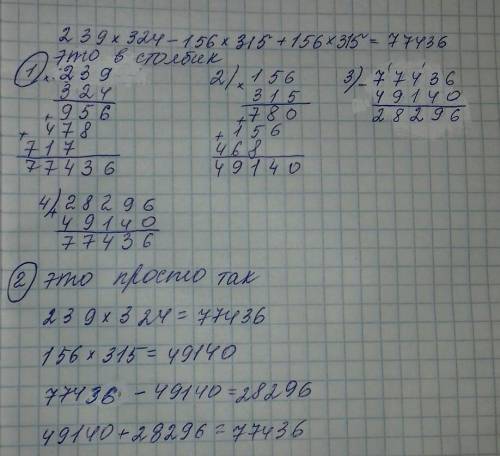 239×324-156×315+156×315=77436
это в столбик
1) ×239
324
+956
+478
717
77436
2) ×156
315
+780
+156
468
49140
3) -77436
49140
28296
4) +28296
49140
77436
2) это просто так
239×324=77436
156×315=49140
77436-49140=28296
49140+28296=77436